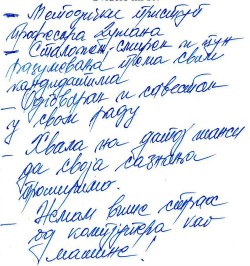 - Методички приступ
професора Душана
- Сталожен, смирен и пун
разумевања према свим
кандидатима
- Одговоран и савестан
у свом раду
- Хвала на датој шанси
да своја сазнања
проширимо.
- Немам више страх
од компјутера као
машине!